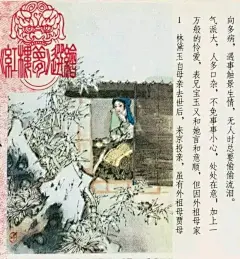 1 林黛玉自母亲去世后，来京投亲，虽有外祖母贾母
万般的怜爱，表兄宝玉又和她言和意顺，但因外祖母家
气派大，人多口杂，不免事事小心，处处在意，加上一
向多病，遇事触景生情，无人时总要偷偷流泪。